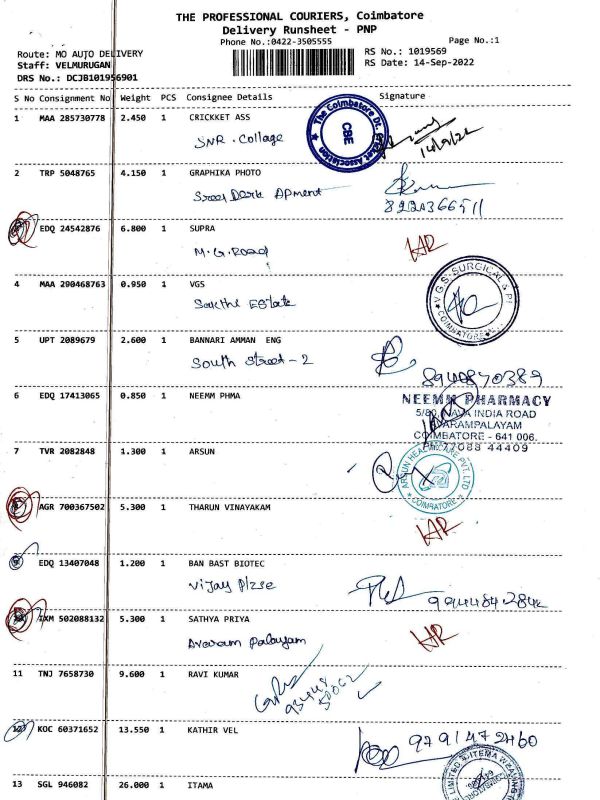 THE PROFESSIONAL COURIERS, Coimbatore
Delivery Runsheet - PNP
Phone No.:0422-3505555
Page No.:1
Route: MO AUTO DELIVERY
RS No.: 1019569
Staff: VELMURUGAN
RS Date: 14-Sep-2022
DRS No.: DCJB101956901
S No Consignment No Weight PCS Consignee Details Signature
1 MAA 285730778 2.450 1 CRICKKET ASS
SNR. Collage
The Coimbatore Dt. Association
CBE
14/9/22
2 TRP 5048765 4.150 1 GRAPHIKA PHOTO
Apment
EDQ 24542876 6.800 1 SUPRA
M.G. Road
4 MAA 290468763 0.950 1 VGS
Sakthi Estate
V.G.S. SURGICAL &
COIMBATORE
5 UPT 2089679 2.600 1 BANNARI AMMAN ENG
South Street - 2
8940870389
6 EDQ 17413065 0.850 1 NEEMM PHMA
NEEMM PHARMACY
NAVA INDIA ROAD
COIMBATORE - 641 006.
77088 44409
7 TVR 2082848 1.300 1 ARSUN
ARSUN HEALTHCARE PVT. LTD
COIMBATORE
AGR 700367502 5.300 1 THARUN VINAYAKAM
EDQ 13407048 1.200 1 BAN BAST BIOTEC
Vijay
9944842842
IXM 502088132 5.300 1 SATHYA PRIYA
Avaram Palayam
11 TNJ 7658730 9.600 1 RAVI KUMAR
12 KOC 60371652 13.550 1 KATHIR VEL
13 SGL 946082 26.000 1 ITAMA